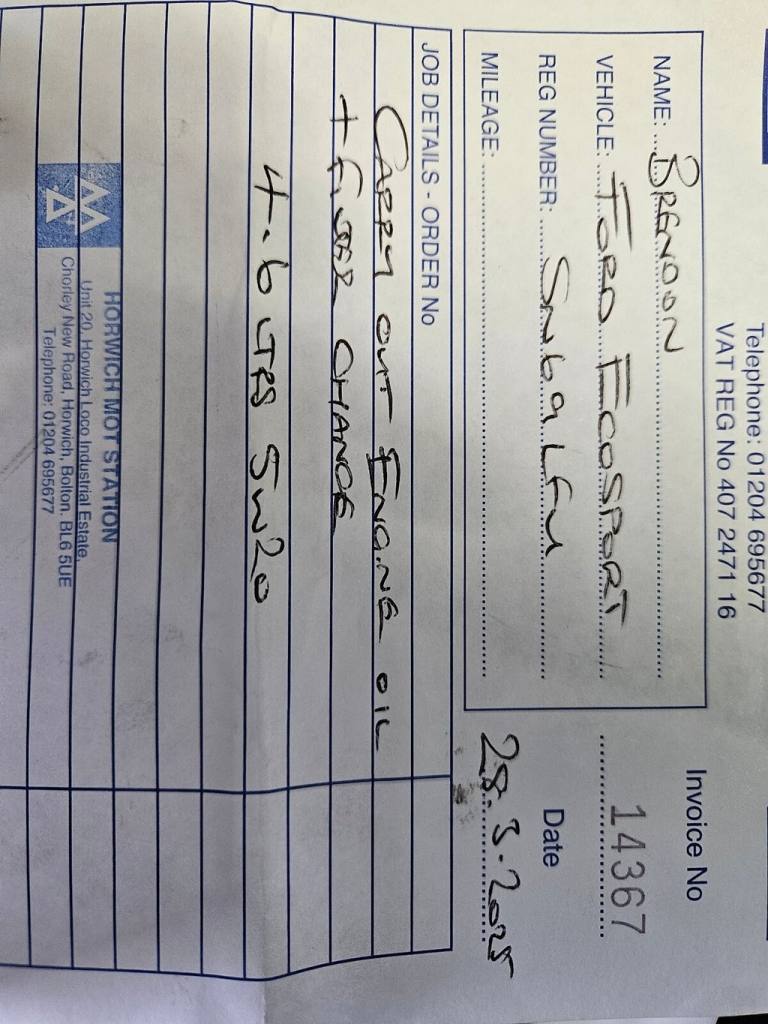 Telephone: 01204 695677
VAT REG No 407 2471 16
Invoice No
14367
NAME: BRENDON
VEHICLE: FORD ECOSPORT
REG NUMBER: SN69LFU
MILEAGE:
Date
28.3.2025
JOB DETAILS - ORDER No
CARRY OUT ENGINE OIL
+ FILTER CHANGE
4.6 LTRS 5W20
HORWICH MOT STATION
Unit 20, Horwich Loco Industrial Estate,
Chorley New Road, Horwich, Bolton, BL6 5UE
Telephone: 01204 695677